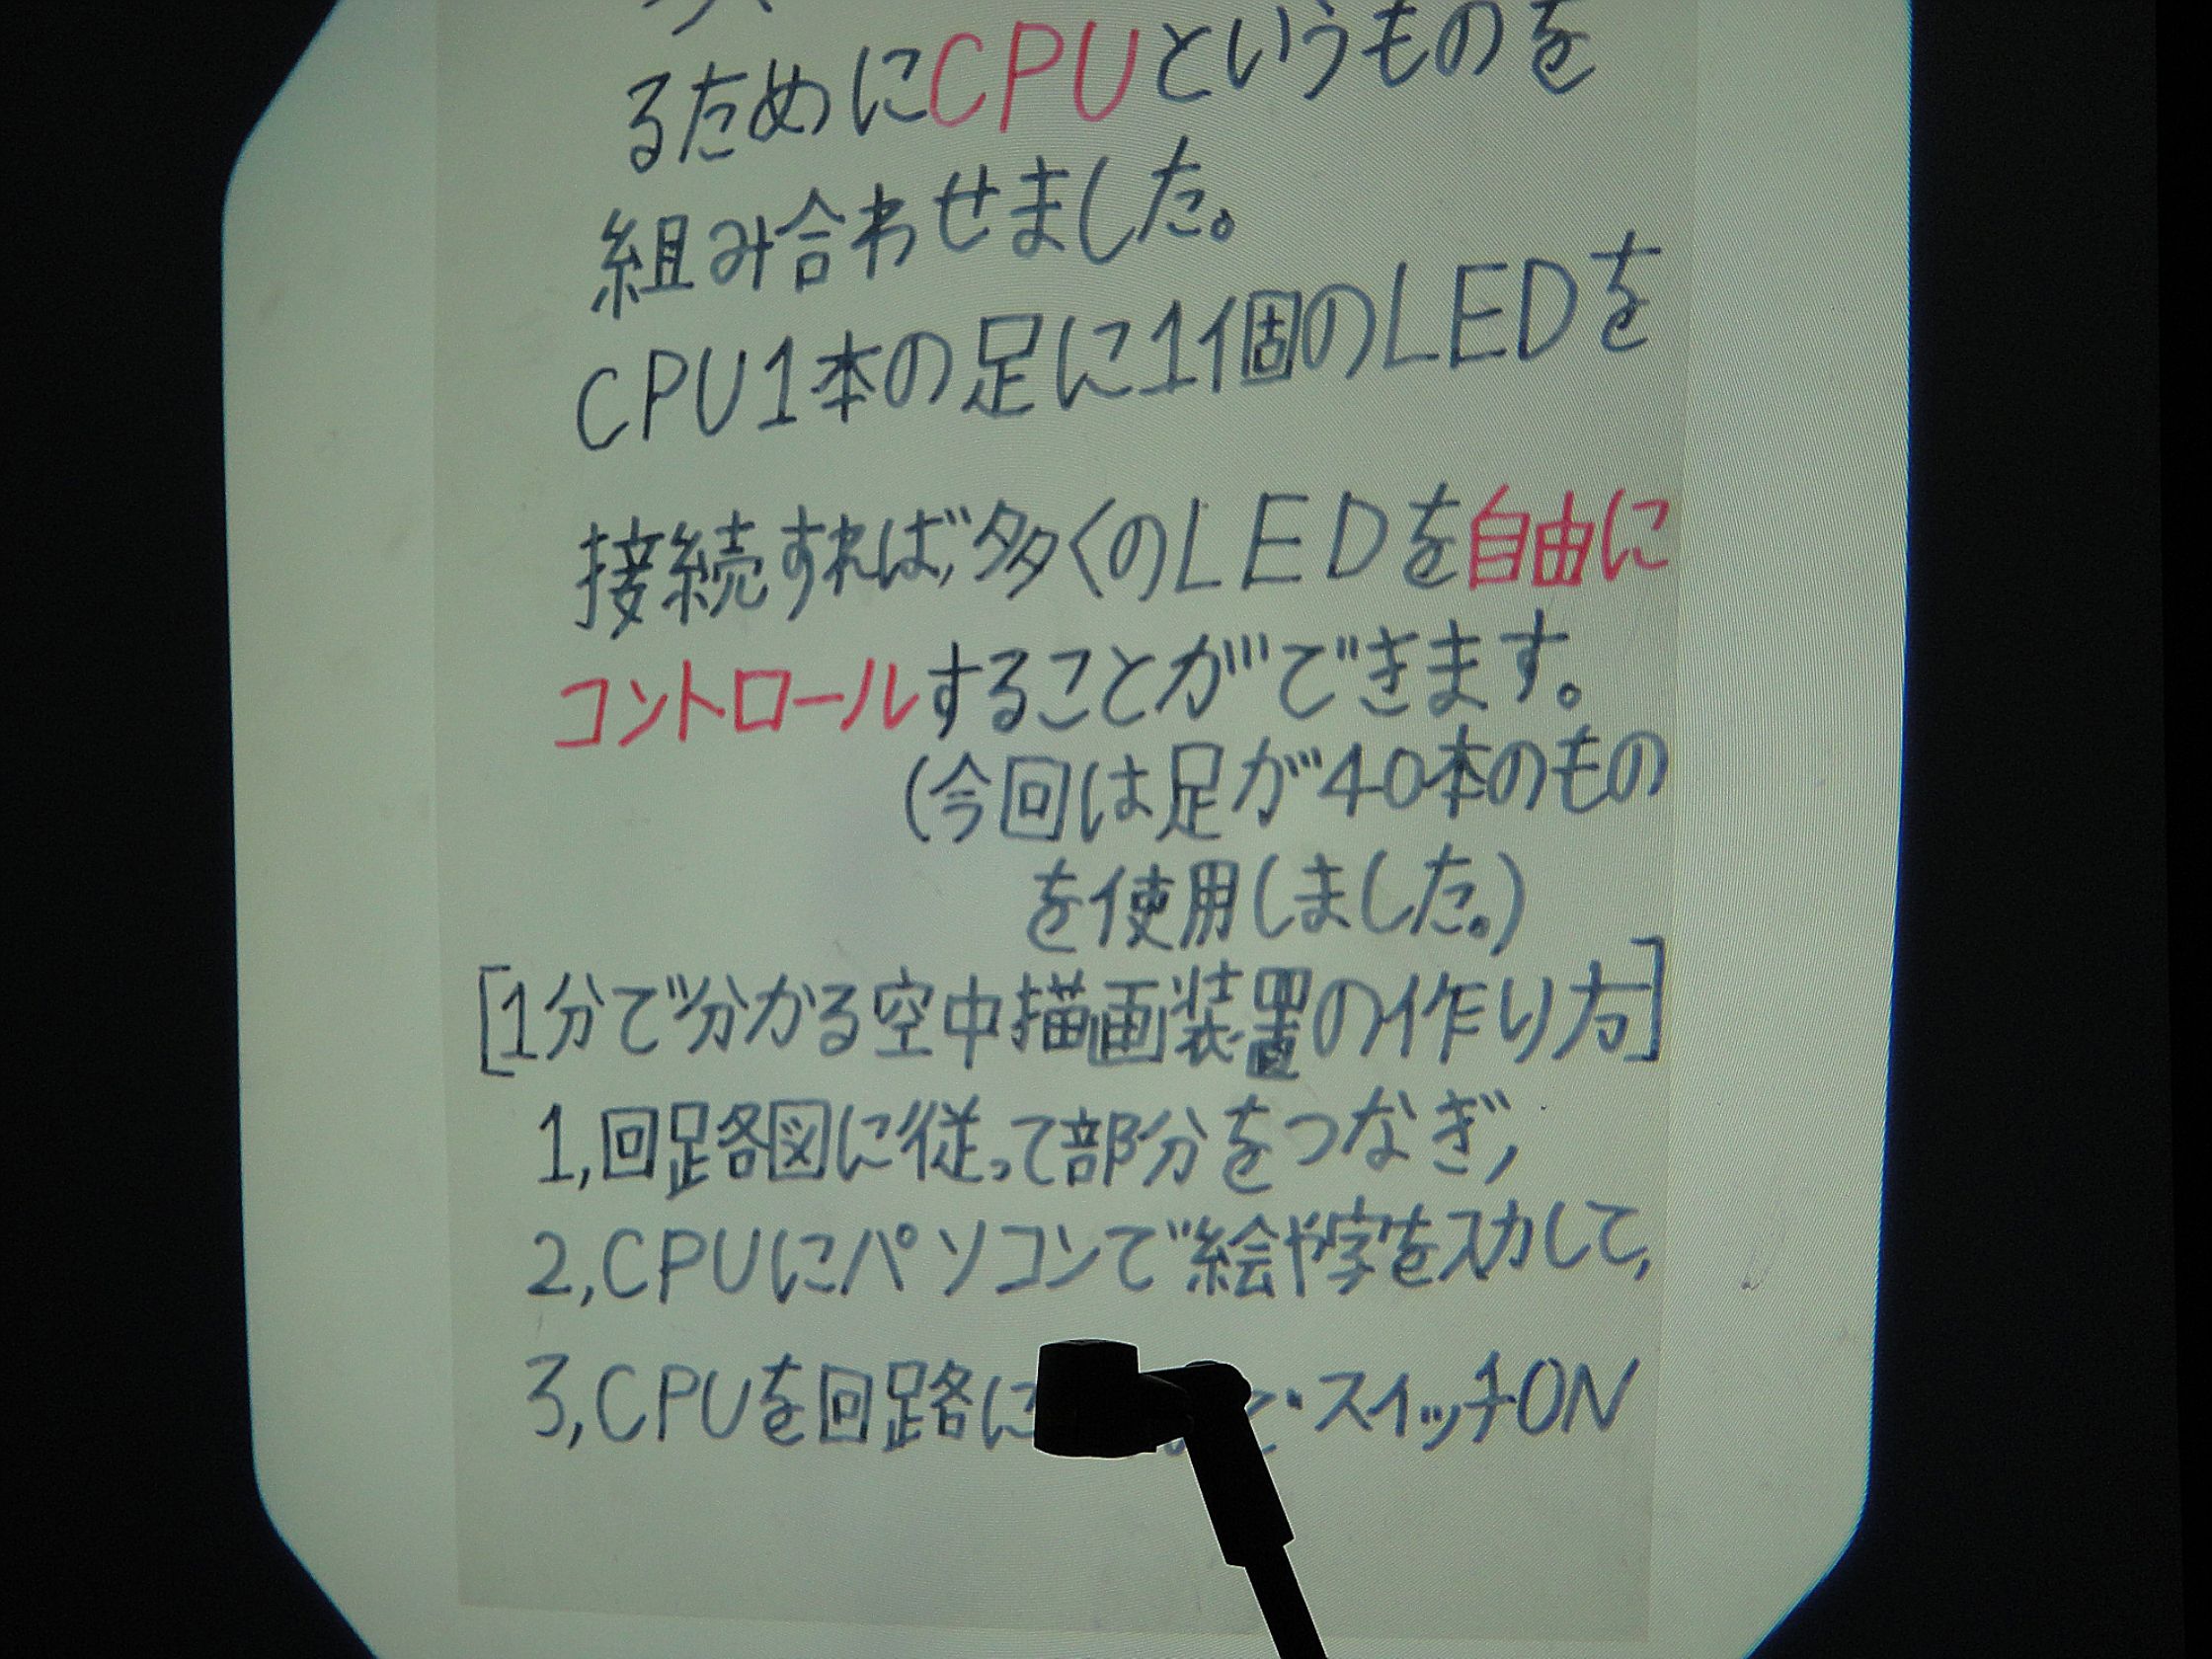 るためにCPUというものを
組み合わせました。
CPU1本の足に1個のLEDを
接続すれば,多くのLEDを自由に
コントロールすることができます。
(今回は足が40本のもの
を使用しました。)
[1分で分かる空中描画装置の作り方]
1,回路図に従って部分をつなぎ,
2,CPUにパソコンで絵や字を入力して,
3,CPUを回路に と・スイッチON